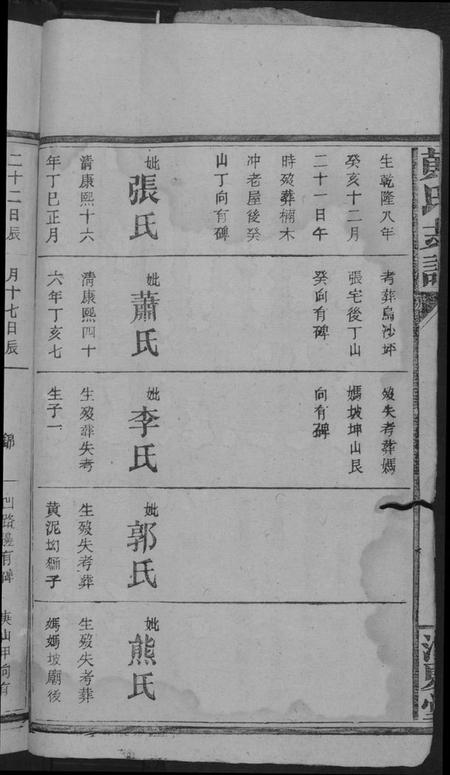 生乾隆八年
癸亥十二月
二十一日午
時歿葬楠木
冲老屋後癸
山丁向有碑
妣張氏
清康熙十六
年丁巳正月
考葬烏沙坪
張宅後丁山
癸向有碑
妣蕭氏
清康熙四十
六年丁亥七
歿失考葬媽
媽坡坤山艮
向有碑
妣李氏
生歿葬失考
生子一
妣郭氏
生歿失考葬
黃泥坳獅子
妣熊氏
生歿失考葬
媽媽坡廟後
二十二日辰
月十七日辰